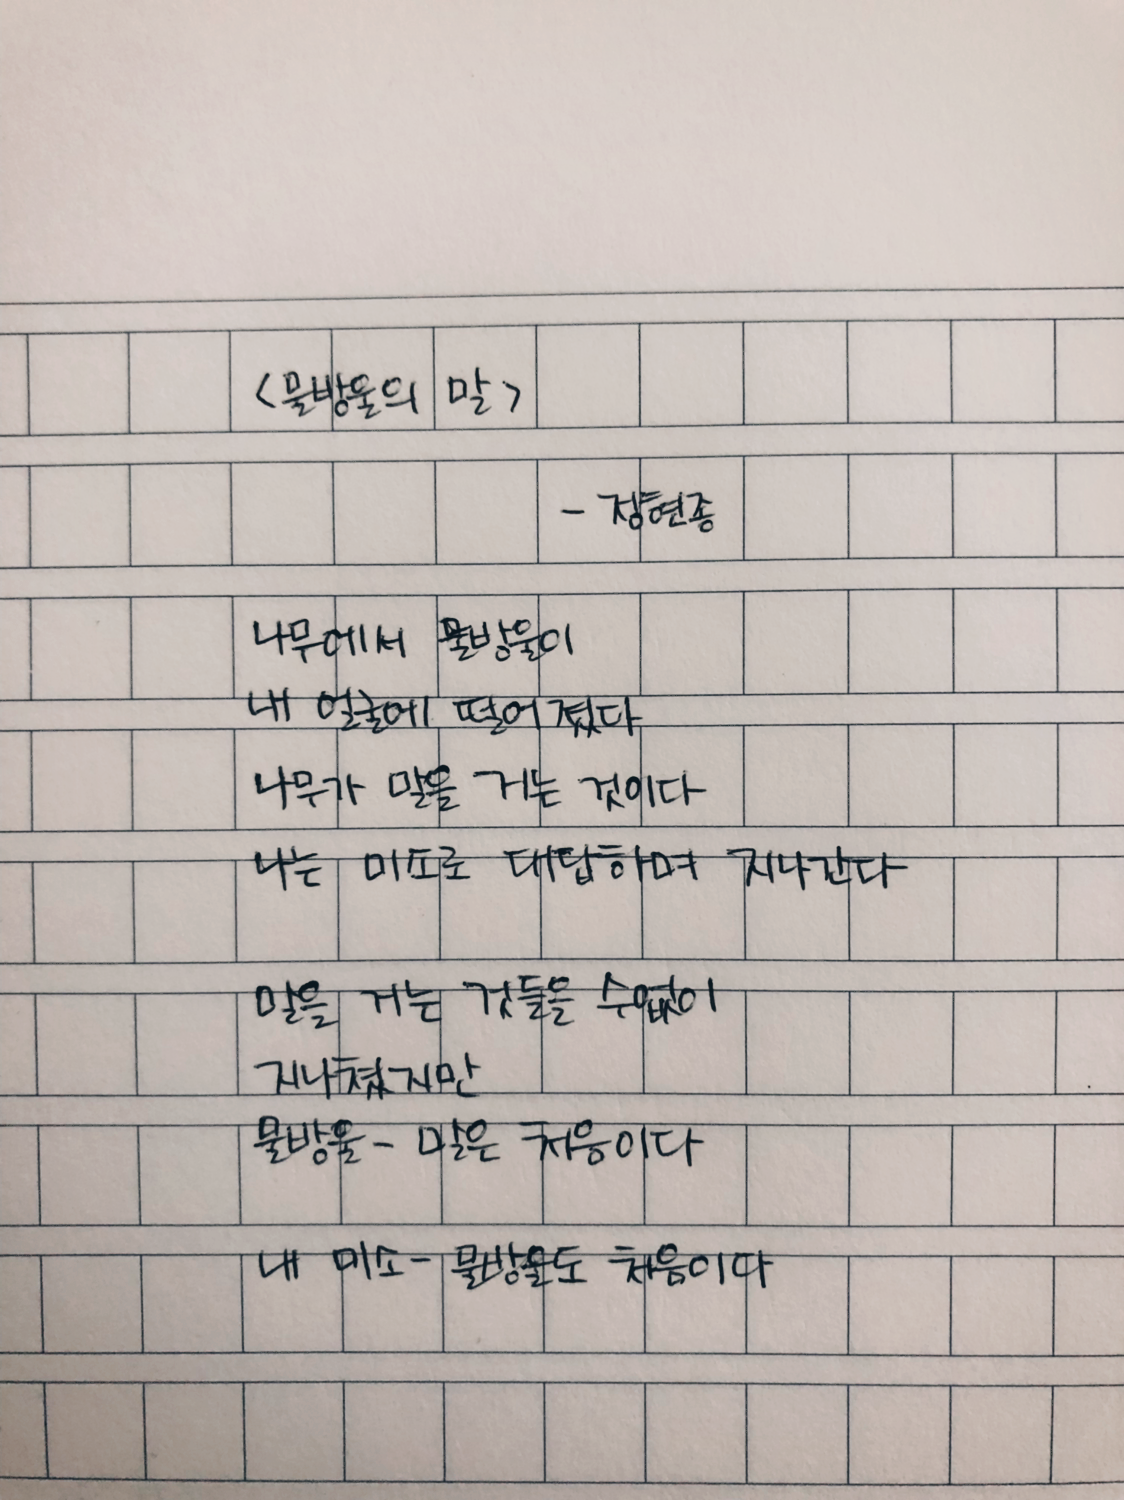 <물방울의 말>
- 정현종
나무에서 물방울이
내 얼굴에 떨어졌다
나무가 말을 거는 것이다
나는 미소로 대답하며 지나간다
말을 거는 것들을 수없이
지나쳤지만
물방울- 말은 처음이다
내 미소- 물방울도 처음이다